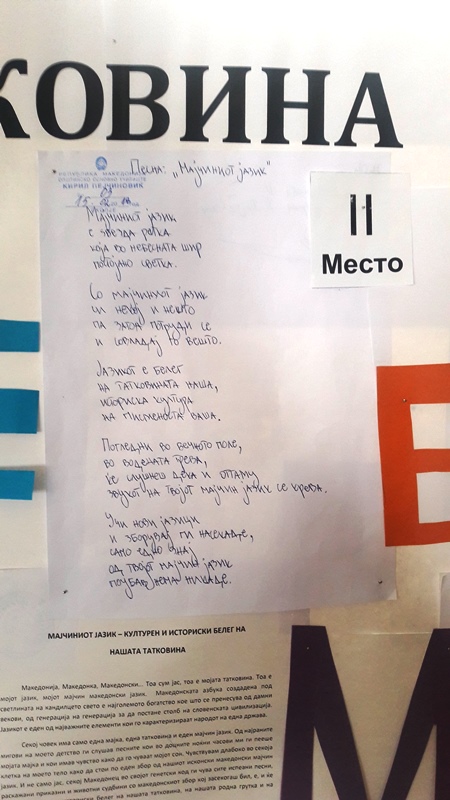 КОВИНА
РЕПУБЛИКА МАКЕДОНИЈА
ОПШТИНСКО ОСНОВНО УЧИЛИШТЕ
КИРИЛ ПЕЈЧИНОВИЌ
Песна: „Мајчиниот јазик“
II
Место
Мајчиниот јазик
е звезда ретка
која во небесната шир
постојано светка.
Со мајчиниот јазик
си некој и нешто
па затоа потруди се
и совладај го вешто.
Јазикот е белег
на татковината наша,
историска култура
на писменоста ваша.
Погледни во вечното поле,
во водената трева,
ќе слушнеш дека и оттаму
звукот на твојот мајчин јазик се крева.
Учи нови јазици
и зборувај ги насекаде,
само едно знај
од твојот мајчин јазик
поубав нема никаде.
Е
Е
М
МАЈЧИНИОТ ЈАЗИК – КУЛТУРЕН И ИСТОРИСКИ БЕЛЕГ НА
НАШАТА ТАТКОВИНА
Македонија, Македонка, Македонски... Тоа сум јас, тоа е мојата татковина. Тоа е
мојот јазик, мојот мајчин македонски јазик. Македонската азбука создадена под
светлината на кандилцето свето е најголемото богатство кое што се пренесува од дамни
векови, од генерација на генерација за да постане столб на словенската цивилизација.
Јазикот е еден од најважните елементи кои го карактеризираат народот на една држава.
Секој човек има само една мајка, една татковина и еден мајчин јазик. Од најраните
мигови на моето детство ги слушав песните кои во доцните ноќни часови ми ги пееше
мојата мајка и кои имав чувство како да го чуваат мојот сон. Чувствувам длабоко во секоја
клетка на моето тело како да стои по еден збор од нашиот исконски македонски мајчин
јазик. И не само јас, секој Македонец во својот генетски код ги чува сите испеани песни,
раскажани приказни и животни судбини со македонскиот збор кој засекогаш бил, е, и ќе
белег на нашата татковина, на нашата родна грутка и на